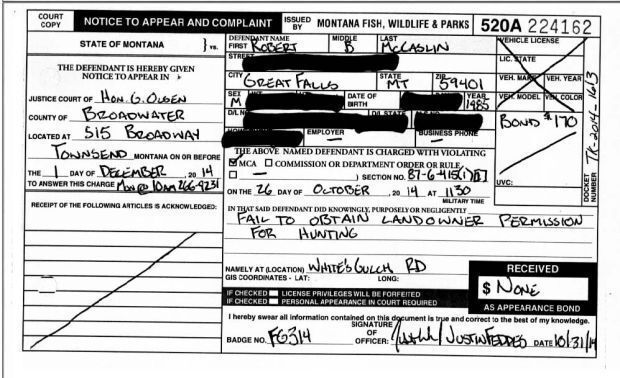 COURT COPY NOTICE TO APPEAR AND COMPLAINT ISSUED BY MONTANA FISH, WILDLIFE & PARKS 520A 224162
STATE OF MONTANA } vs.
THE DEFENDANT IS HEREBY GIVEN
NOTICE TO APPEAR IN
JUSTICE COURT OF Hon. G. Olsen
COUNTY OF BROADWATER
LOCATED AT 515 BROADWAY
TOWNSEND MONTANA ON OR BEFORE
THE 1 DAY OF DECEMBER, 2014
TO ANSWER THIS CHARGE Mon @ 10am 266-9231
RECEIPT OF THE FOLLOWING ARTICLES IS ACKNOWLEDGED:
DEFENDANT NAME
FIRST ROBERT MIDDLE B LAST McCASLIN
STREET
CITY GREAT FALLS STATE MT ZIP 59401
SEX M DATE OF BIRTH YEAR 1985
D/L NO. D/L STATE
EMPLOYER — BUSINESS PHONE —
THE ABOVE NAMED DEFENDANT IS CHARGED WITH VIOLATING
☑ MCA ☐ COMMISSION OR DEPARTMENT ORDER OR RULE,
☐ — ) SECTION NO. 87-6-415(1)
ON THE 26 DAY OF OCTOBER, 2014 AT 1130
MILITARY TIME
IN THAT SAID DEFENDANT DID KNOWINGLY, PURPOSELY OR NEGLIGENTLY
FAIL TO OBTAIN LANDOWNER PERMISSION
FOR HUNTING
NAMELY AT (LOCATION) WHITE'S GULCH RD
GIS COORDINATES - LAT: LONG:
IF CHECKED LICENSE PRIVILEGES WILL BE FORFEITED
IF CHECKED PERSONAL APPEARANCE IN COURT REQUIRED
VEHICLE LICENSE
LIC. STATE
VEH. MAKE VEH. YEAR
VEH. MODEL VEH. COLOR
BOND $170
UVC:
DOCKET NUMBER TK-2014-1613
RECEIVED
$ NONE
AS APPEARANCE BOND
I hereby swear all information contained on this document is true and correct to the best of my knowledge.
BADGE NO. FG314 SIGNATURE OF OFFICER: JUSTIN FEDDES DATE 10/31/14